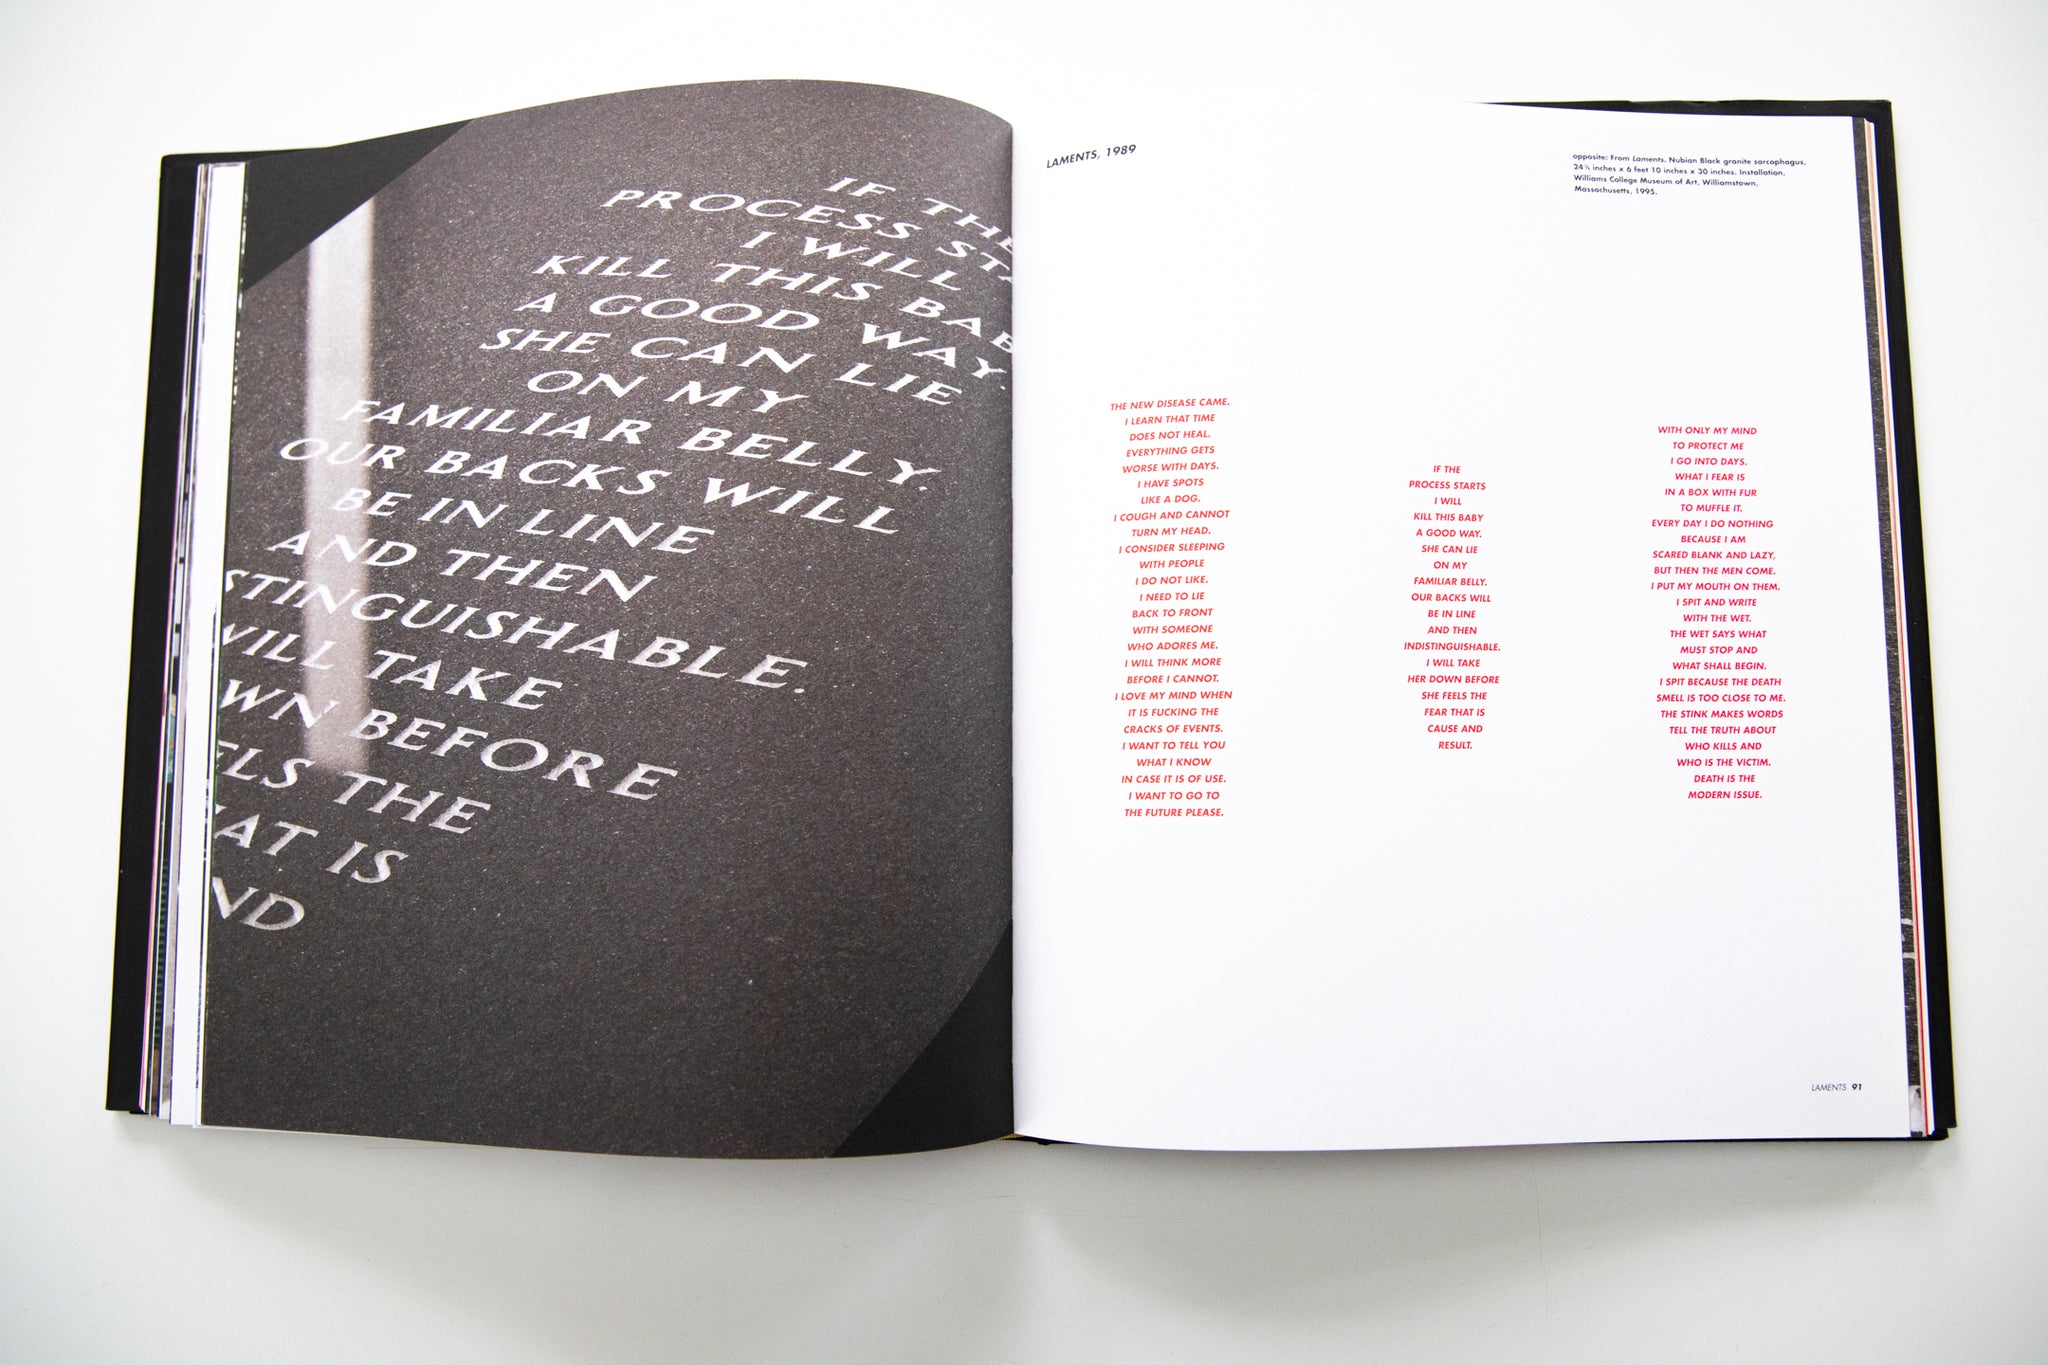 IF THE
PROCESS STA
I WILL
KILL THIS BAB
A GOOD WAY.
SHE CAN LIE
ON MY
FAMILIAR BELLY.
OUR BACKS WILL
BE IN LINE
AND THEN
STINGUISHABLE.
WILL TAKE
WN BEFORE
ELS THE
HAT IS
ND
LAMENTS, 1989
opposite: From Laments. Nubian Black granite sarcophagus,
24 ½ inches x 6 feet 10 inches x 30 inches. Installation,
Williams College Museum of Art, Williamstown,
Massachusetts, 1995.
THE NEW DISEASE CAME.
I LEARN THAT TIME
DOES NOT HEAL.
EVERYTHING GETS
WORSE WITH DAYS.
I HAVE SPOTS
LIKE A DOG.
I COUGH AND CANNOT
TURN MY HEAD.
I CONSIDER SLEEPING
WITH PEOPLE
I DO NOT LIKE.
I NEED TO LIE
BACK TO FRONT
WITH SOMEONE
WHO ADORES ME.
I WILL THINK MORE
BEFORE I CANNOT.
I LOVE MY MIND WHEN
IT IS FUCKING THE
CRACKS OF EVENTS.
I WANT TO TELL YOU
WHAT I KNOW
IN CASE IT IS OF USE.
I WANT TO GO TO
THE FUTURE PLEASE.
IF THE
PROCESS STARTS
I WILL
KILL THIS BABY
A GOOD WAY.
SHE CAN LIE
ON MY
FAMILIAR BELLY.
OUR BACKS WILL
BE IN LINE
AND THEN
INDISTINGUISHABLE.
I WILL TAKE
HER DOWN BEFORE
SHE FEELS THE
FEAR THAT IS
CAUSE AND
RESULT.
WITH ONLY MY MIND
TO PROTECT ME
I GO INTO DAYS.
WHAT I FEAR IS
IN A BOX WITH FUR
TO MUFFLE IT.
EVERY DAY I DO NOTHING
BECAUSE I AM
SCARED BLANK AND LAZY,
BUT THEN THE MEN COME.
I PUT MY MOUTH ON THEM.
I SPIT AND WRITE
WITH THE WET.
THE WET SAYS WHAT
MUST STOP AND
WHAT SHALL BEGIN.
I SPIT BECAUSE THE DEATH
SMELL IS TOO CLOSE TO ME.
THE STINK MAKES WORDS
TELL THE TRUTH ABOUT
WHO KILLS AND
WHO IS THE VICTIM.
DEATH IS THE
MODERN ISSUE.
LAMENTS 91